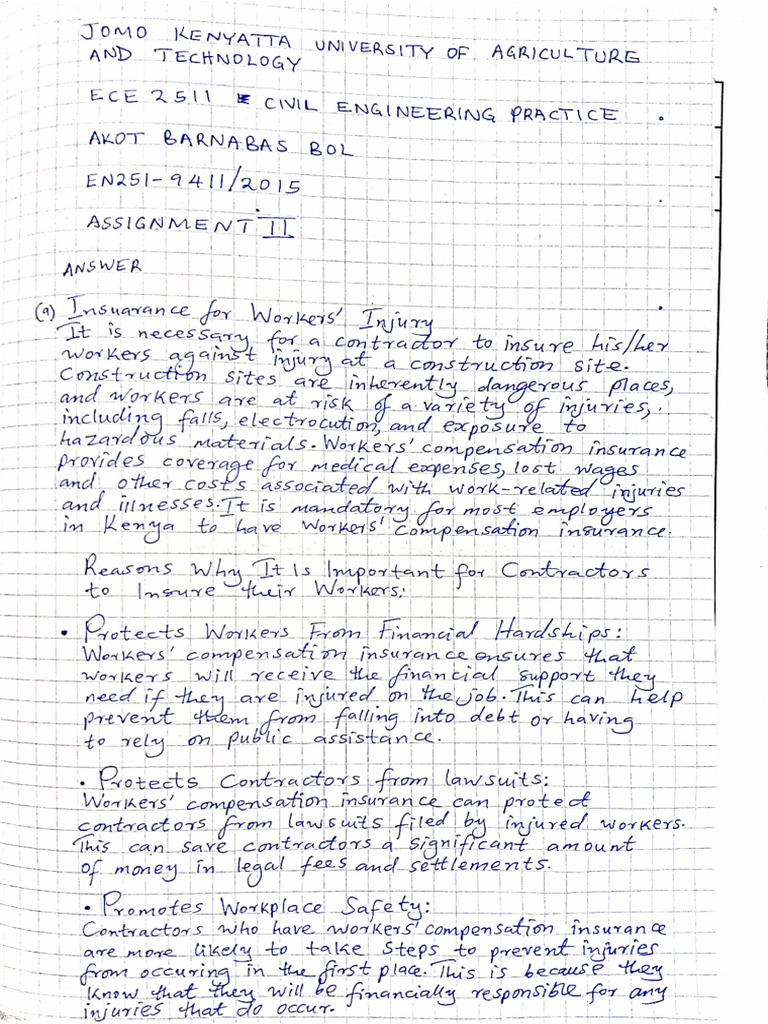 JOMO KENYATTA UNIVERSITY OF AGRICULTURE
AND TECHNOLOGY
ECE 2511 - CIVIL ENGINEERING PRACTICE
AKOT BARNABAS BOL
EN251-9411/2015
ASSIGNMENT II
ANSWER
(a) Insuarance for Workers' Injury
It is necessary for a contractor to insure his/her
workers against injury at a construction site.
Construction sites are inherently dangerous places,
and workers are at risk of a variety of injuries,
including falls, electrocution, and exposure to
hazardous materials. Workers' compensation insurance
provides coverage for medical expenses, lost wages
and other costs associated with work-related injuries
and illnesses. It is mandatory for most employers
in Kenya to have Workers' Compensation insurance.
Reasons Why It Is Important for Contractors
to Insure their Workers:
• Protects Workers From Financial Hardships:
Workers' compensation insurance ensures that
workers will receive the financial support they
need if they are injured on the job. This can help
prevent them from falling into debt or having
to rely on public assistance.
• Protects Contractors from lawsuits:
Workers' compensation insurance can protect
contractors from lawsuits filed by injured workers.
This can save contractors a significant amount
of money in legal fees and settlements.
• Promotes Workplace Safety:
Contractors who have workers' compensation insurance
are more likely to take steps to prevent injuries
from occuring in the first place. This is because they
know that they will be financially responsible for any
injuries that do occur.